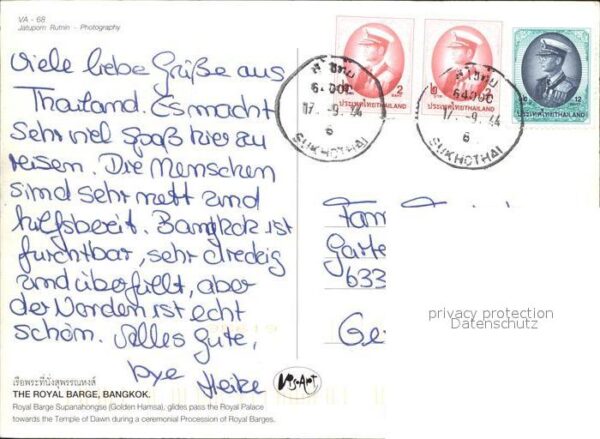 VA - 68
Jatuporn Rutnin - Photography
Viele liebe Grüße aus
Thailand. Es macht
sehr viel Spaß hier zu
reisen. Die Menschen
sind sehr nett und
hilfsbereit. Bangkok ist
furchtbar, sehr dreckig
und überfüllt, aber
der Norden ist echt
schön. Alles Gute,
bye Heike
เรือพระที่นั่งสุพรรณหงส์
THE ROYAL BARGE, BANGKOK.
Royal Barge Supanahongse (Golden Hamsa), glides pass the Royal Palace
towards the Temple of Dawn during a ceremonial Procession of Royal Barges.
Vis-Art
2 ประเทศไทย THAILAND
2 ประเทศไทย THAILAND
12 ประเทศไทย THAILAND
64000
17.-9.44
6
SUKHOTHAI
64000
17.-9.44
6
SUKHOTHAI
Fam
Garte
633
privacy protection
Datenschutz
Ge